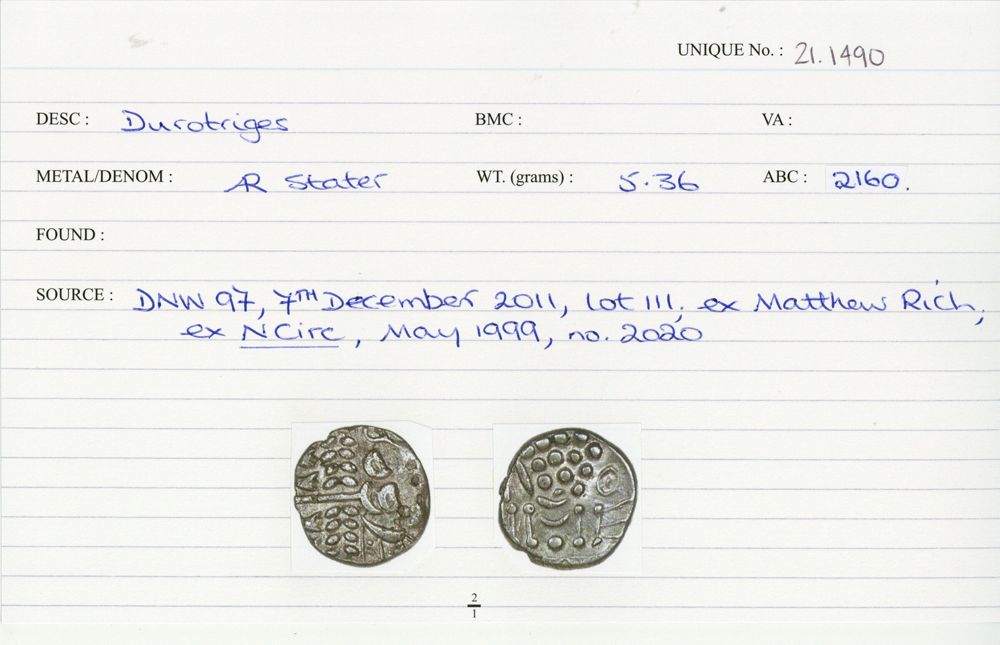 UNIQUE No. : 21.1490
DESC : Durotriges BMC : VA :
METAL/DENOM : AR Stater WT. (grams) : 5.36 ABC : 2160.
FOUND :
SOURCE : DNW 97, 7TH December 2011, lot 111, ex Matthew Rich,
ex NCirc, May 1999, no. 2020
2
1